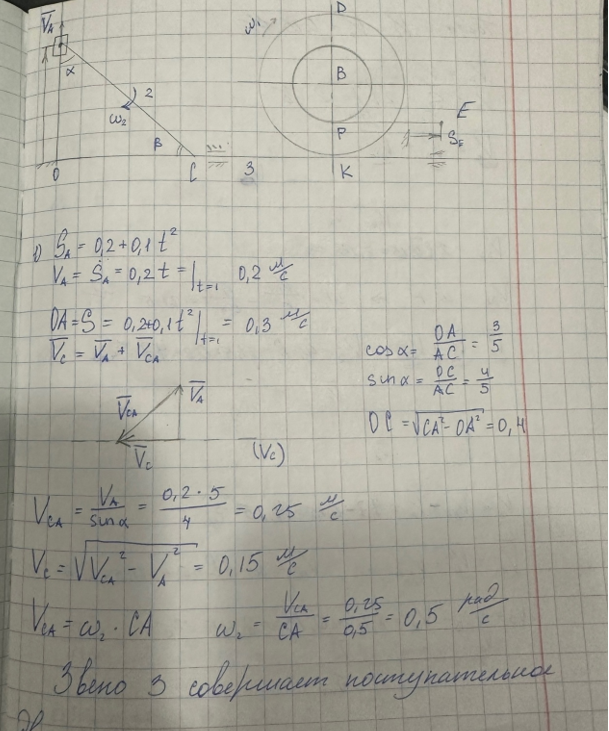 V̅A
α
2
ω₂
β
O
C
3
ω₁
D
B
P
K
E
Sε
1) SA = 0,2 + 0,1 t²
VA = ṠA = 0,2 t = |t=1 0,2 м/с
OA = S = 0,2+0,1 t² |t=1 = 0,3 м/с
V̅C = V̅A + V̅CA
cos α = OA/AC = 3/5
sin α = OC/AC = 4/5
OC = √(CA² - OA²) = 0,4
V̅CA
V̅A
V̅C
(VC)
VCA = VA/sin α = 0,2 · 5/4 = 0,25 м/с
VC = √(VCA² - VA²) = 0,15 м/с
VCA = ω₂ · CA ω₂ = VCA/CA = 0,25/0,5 = 0,5 рад/с
Звено 3 совершает поступательное